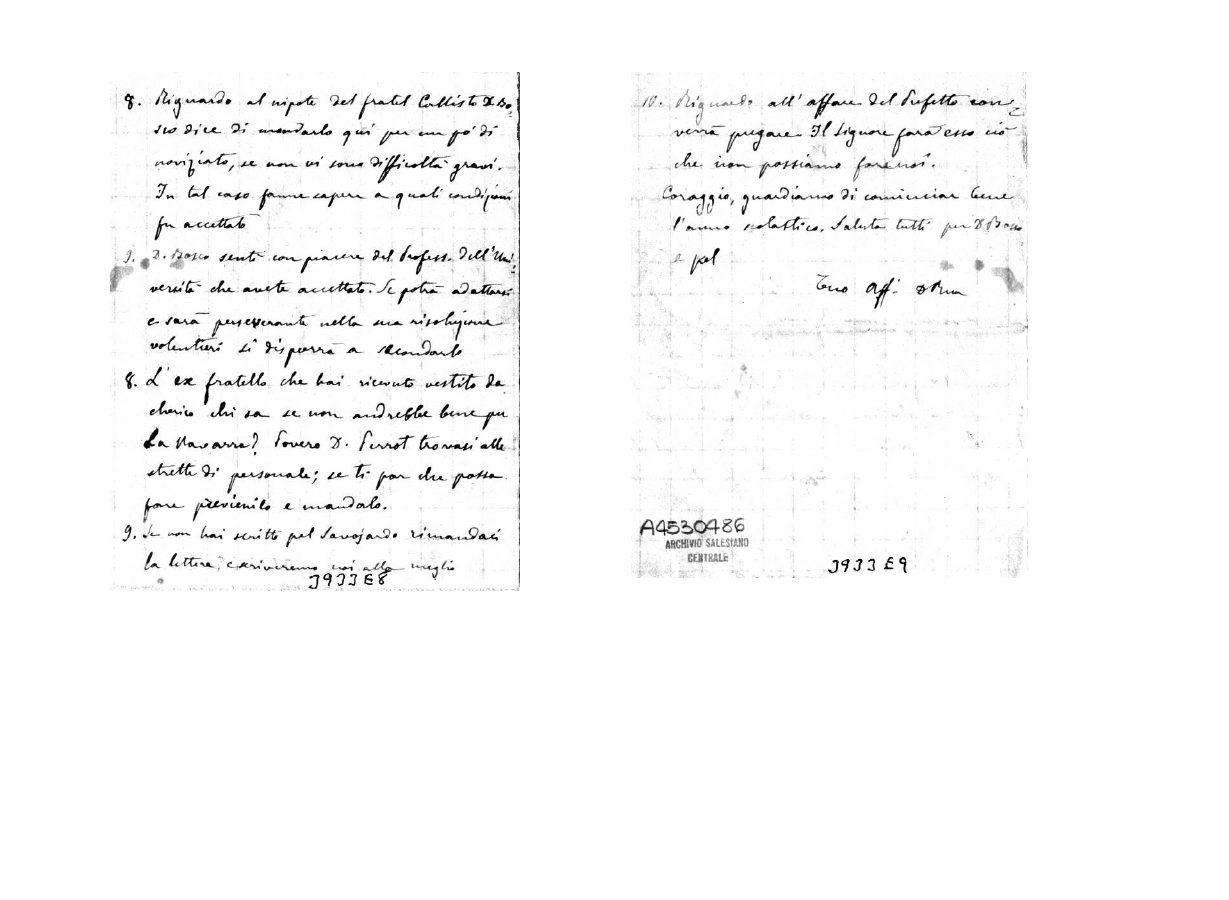 8. Riguardo al nipote del fratel Callisto D Bo=
sco dice di mandarlo qui per un pó di
noviziato, se non vi sono difficoltà gravi.
In tal caso fanne sapere a quali condizioni
fu accettato
9. D. Bosco sentì con piacere del Profess. dell'Uni=
versità che avete accettato. Se potrà adattarsi
e sarà perseverante nella sua risoluzione
volentieri si disporrà a secondarlo
8. L'ex fratello che hai ricevuto vestito da
cherico chi sa se non andrebbe bene per
La Navarra? Povero D. Perrot trovasi alle
strette di personale; se ti par che possa
fare previenilo e mandalo.
9. Se non hai scritto pel Savojardo rimandaci
la lettera, e scriveremo noi alla meglio
3933E8
10. Riguardo all'affare del Prefetto con=
verrà pregare. Il Signore farà esso ciò
che non possiamo far noi.
Coraggio, guardiamo di cominciar bene
l'anno scolastico. Saluta tutti per D Bosco
e pel
Tuo Aff. D Rua
A4530486
ARCHIVIO SALESIANO
CENTRALE
3933E9